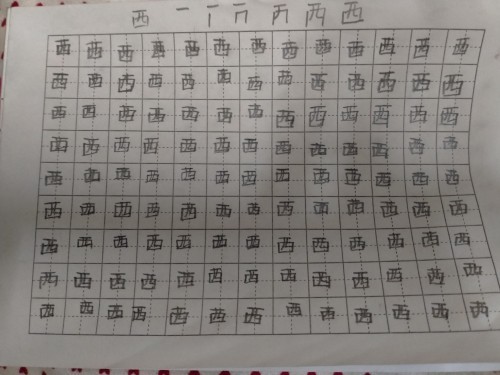 西 一 西
西 西 西 西 西 西 西 西 西 西 西 西 西
西 西 西 西 西 西 西 西 西 西 西 西 西
西 西 西 西 西 西 西 西 西 西 西 西 西
西 西 西 西 西 西 西 西 西 西 西 西 西
西 西 西 西 西 西 西 西 西 西 西 西 西
西 西 西 西 西 西 西 西 西 西 西 西 西
西 西 西 西 西 西 西 西 西 西 西 西 西
西 西 西 西 西 西 西 西 西 西 西 西 西
西 西 西 西 西 西 西 西 西 西 西 西 西